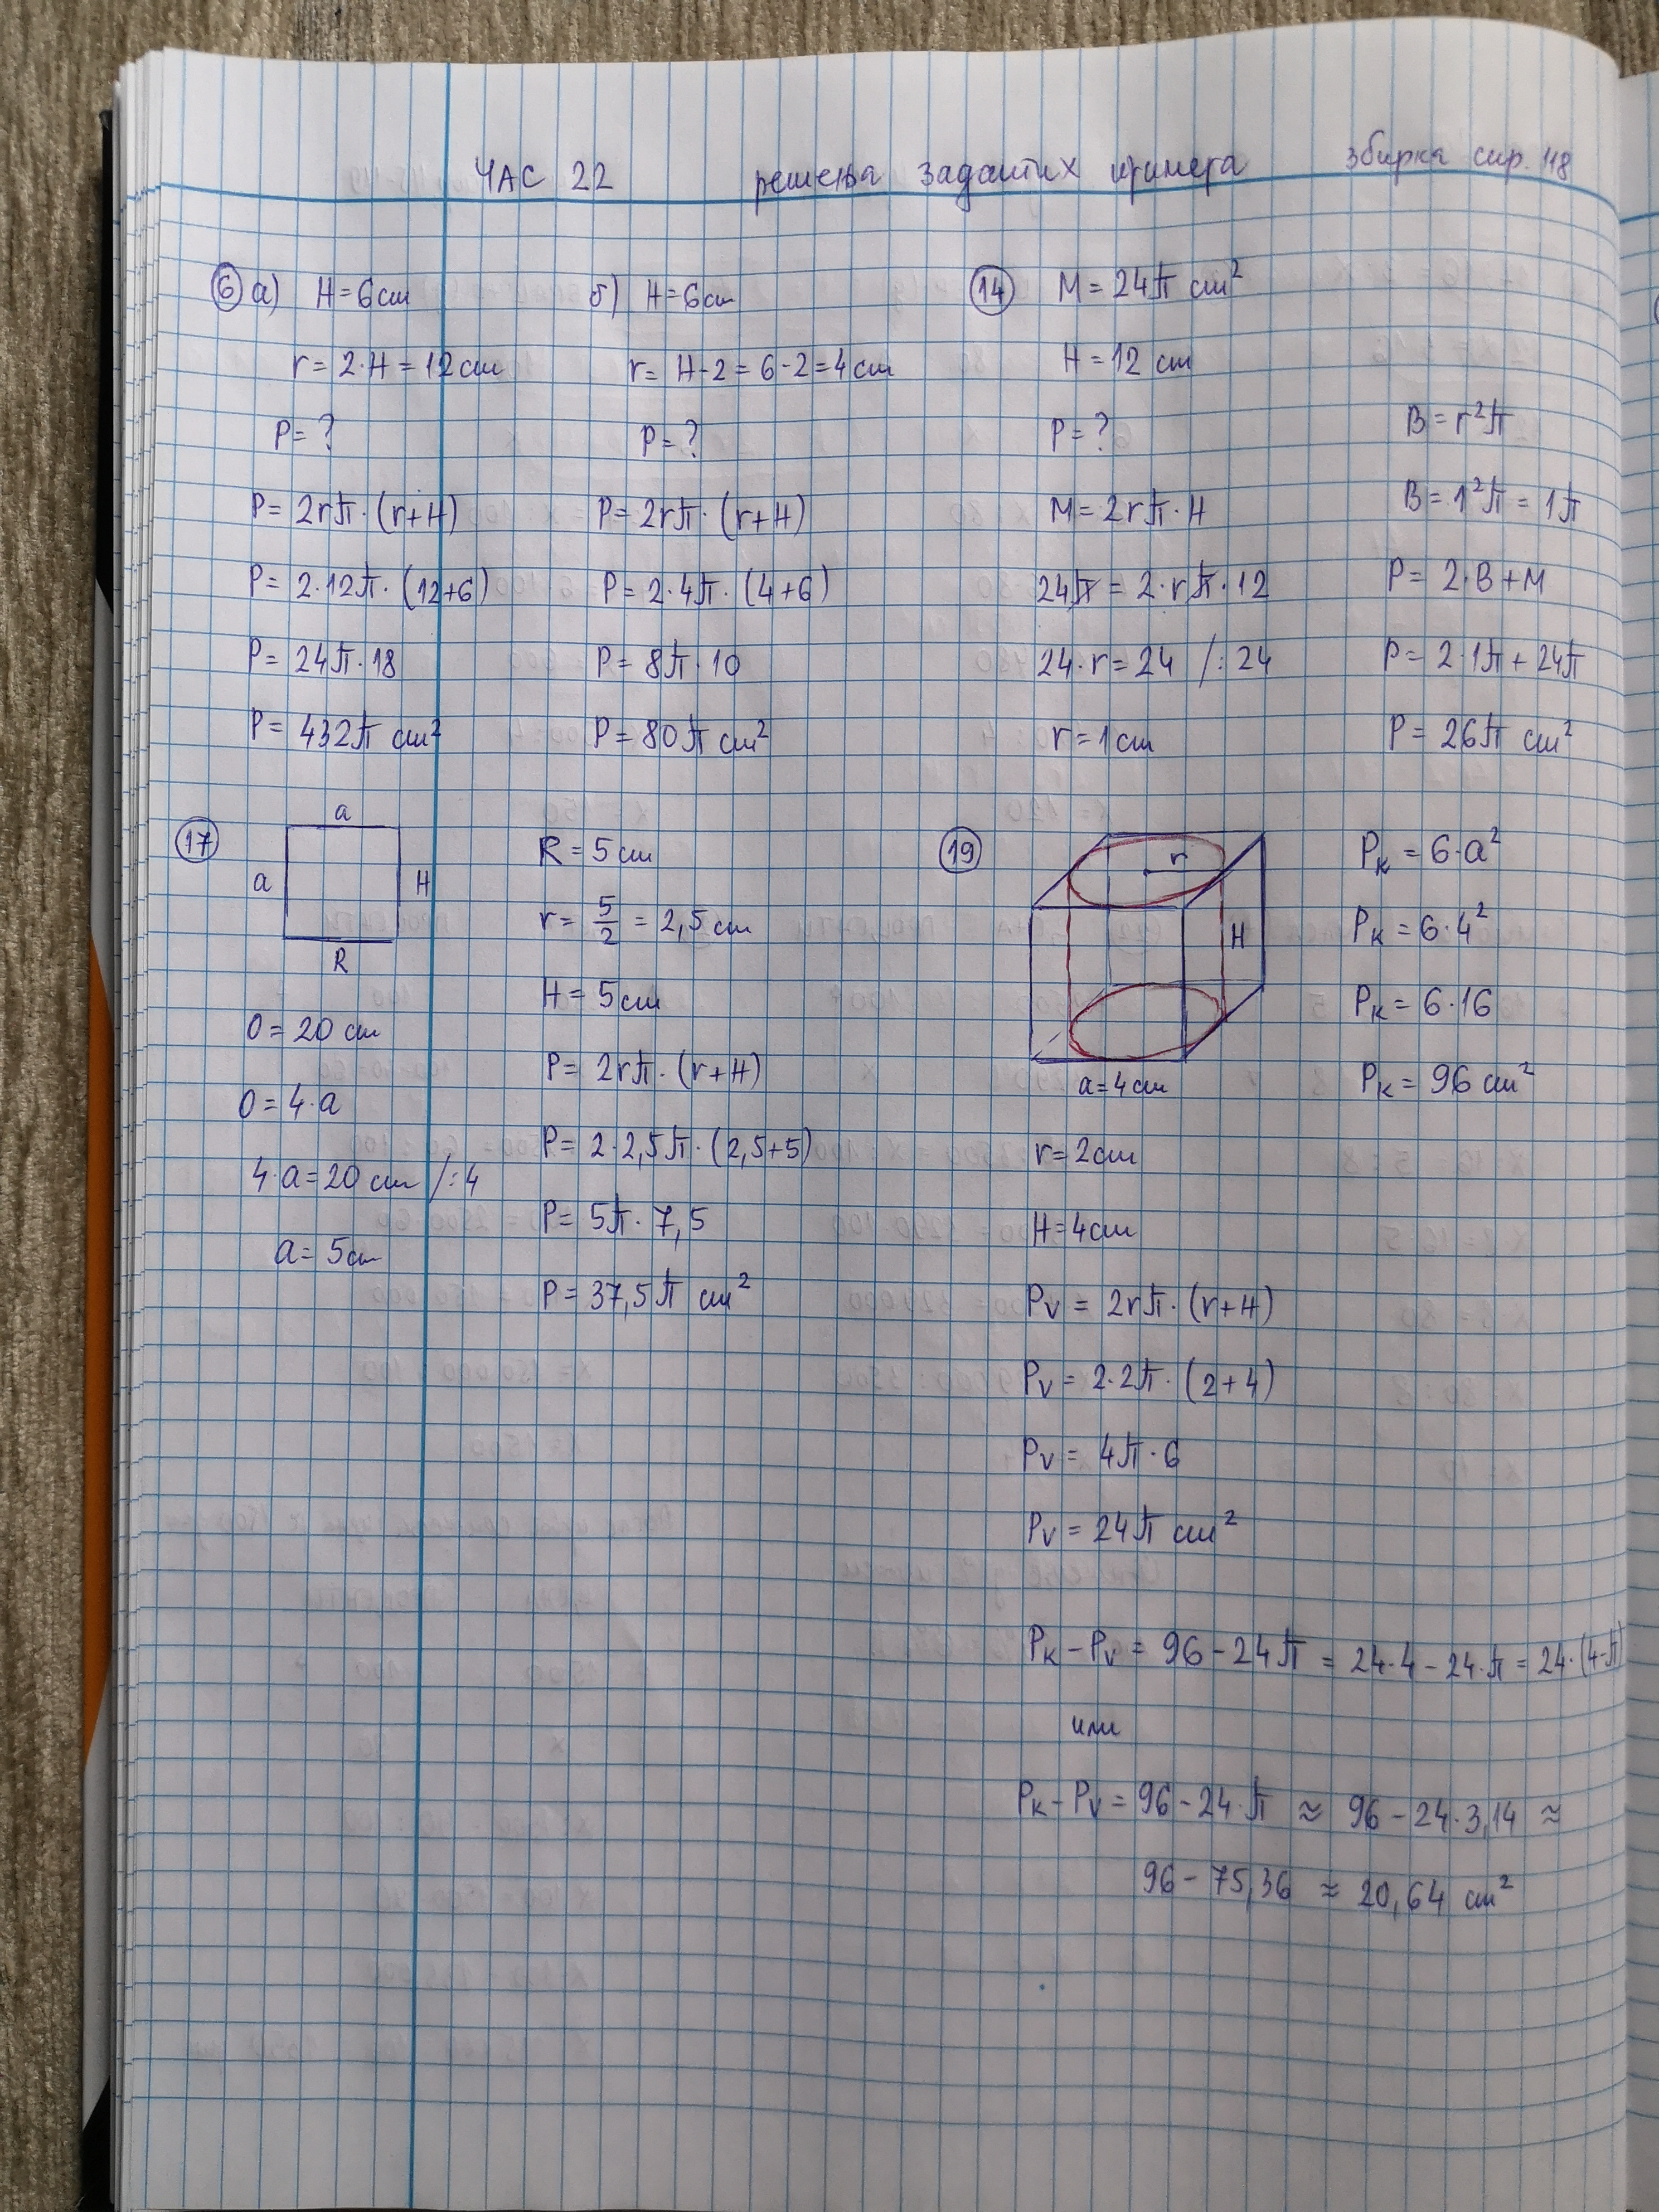 ЧАС 22 решења задатих примера збирка стр. 118
⑥ а) H = 6 cm
r = 2·H = 12 cm
P = ?
P = 2rπ·(r+H)
P = 2·12π·(12+6)
P = 24π·18
P = 432π cm²
б) H = 6 cm
r = H-2 = 6-2 = 4 cm
P = ?
P = 2rπ·(r+H)
P = 2·4π·(4+6)
P = 8π·10
P = 80π cm²
⑭ M = 24π cm²
H = 12 cm
P = ?
M = 2rπ·H
24π = 2·rπ·12
24·r = 24 /:24
r = 1 cm
B = r²π
B = 1²π = 1π
P = 2·B+M
P = 2·1π + 24π
P = 26π cm²
⑰
a
a
H
R
O = 20 cm
O = 4·a
4·a = 20 cm /:4
a = 5 cm
R = 5 cm
r = 5/2 = 2,5 cm
H = 5 cm
P = 2rπ·(r+H)
P = 2·2,5π·(2,5+5)
P = 5π·7,5
P = 37,5π cm²
⑲
r
H
a = 4 cm
r = 2 cm
H = 4 cm
Pᵥ = 2rπ·(r+H)
Pᵥ = 2·2π·(2+4)
Pᵥ = 4π·6
Pᵥ = 24π cm²
Pₖ = 6·a²
Pₖ = 6·4²
Pₖ = 6·16
Pₖ = 96 cm²
Pₖ - Pᵥ = 96 - 24π = 24·4 - 24·π = 24·(4-π)
или
Pₖ - Pᵥ = 96 - 24·π ≈ 96 - 24·3,14 ≈
96 - 75,36 ≈ 20,64 cm²